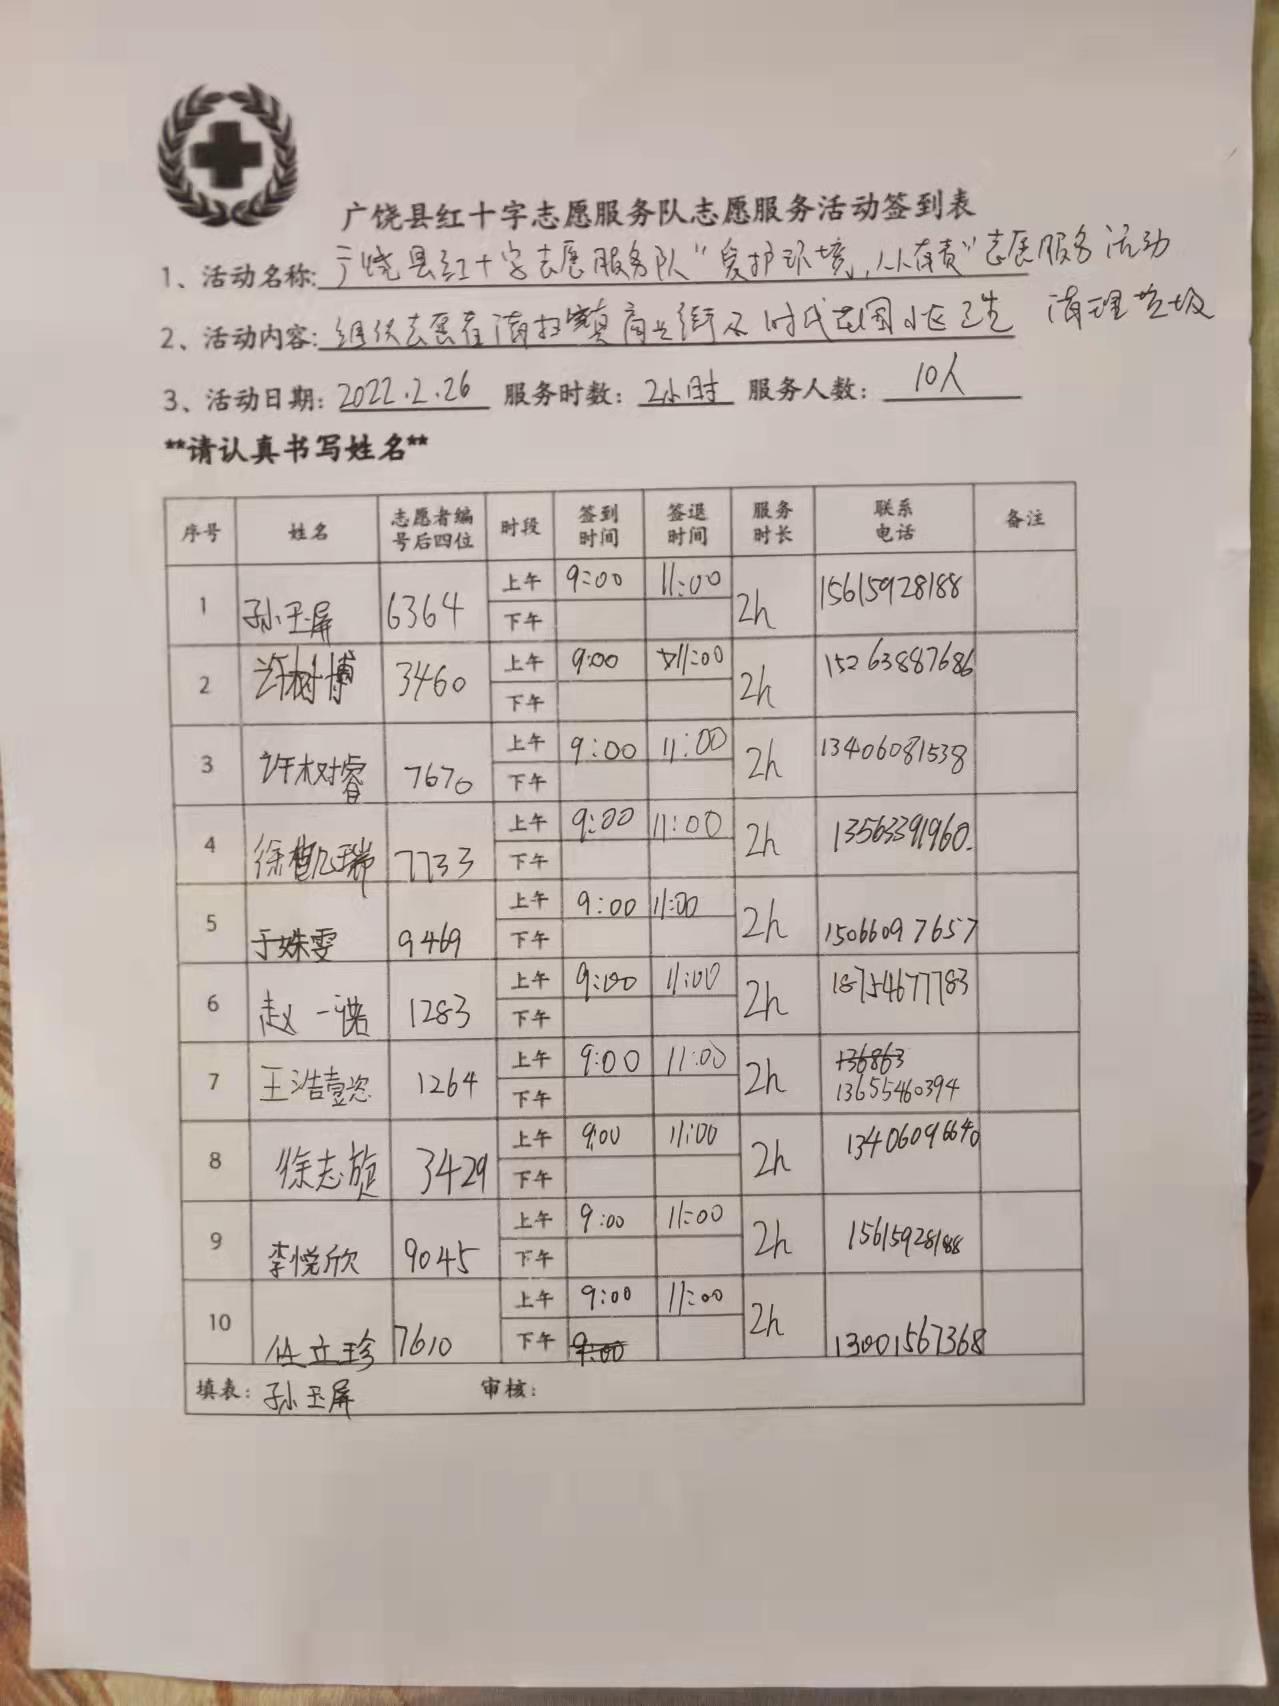 广饶县红十字志愿服务队志愿服务活动签到表
1、活动名称:广饶县红十字志愿服务队“爱护环境,人人有责”志愿服务活动
2、活动内容:组织志愿者清扫 镇商业街及时代花园小区卫生 清理垃圾
3、活动日期: 2022.2.26 服务时数: 2小时 服务人数: 10人
**请认真书写姓名**
序号 姓名 志愿者编号后四位 时段 签到时间 签退时间 服务时长 联系电话 备注
1 孙玉屏 6364 上午 9:00 11:00 2h 15615928188
下午
2 许树博 3460 上午 9:00 11:00 2h 15263887686
下午
3 许树睿 7670 上午 9:00 11:00 2h 13406081538
下午
4 徐凯瑞 7733 上午 9:00 11:00 2h 13563391960.
下午
5 于姝雯 9469 上午 9:00 11:00 2h 15066097657
下午
6 赵一诺 1283 上午 9:00 11:00 2h 18754677783
下午
7 王浩壹恣 1264 上午 9:00 11:00 2h 136863 13655460394
下午
8 徐志旋 3429 上午 9:00 11:00 2h 13406096640
下午
9 李悦欣 9045 上午 9:00 11:00 2h 15615928188
下午
10 任立珍 7610 上午 9:00 11:00 2h 13001567368
下午 9:00
填表: 孙玉屏 审核: